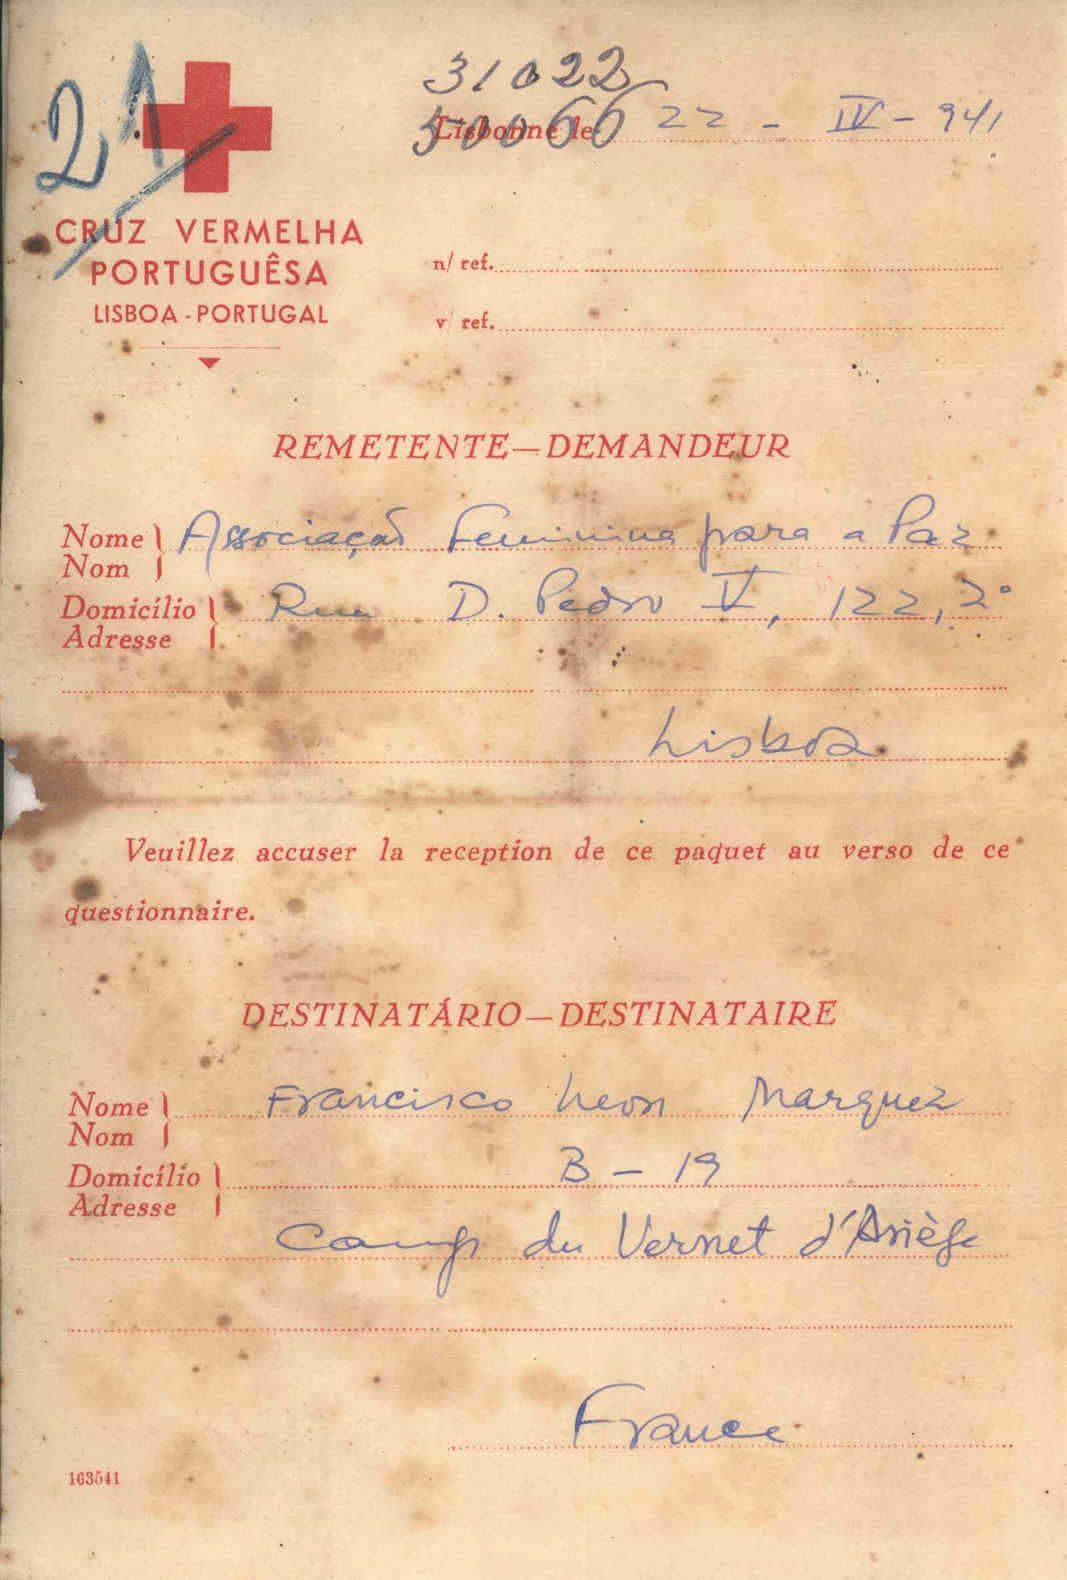 21
31022
50066
Lisbonne le 22 - IV - 941
CRUZ VERMELHA
PORTUGUÊSA
LISBOA - PORTUGAL
n/ ref.
v/ ref.
REMETENTE—DEMANDEUR
Nome
Nom
Associação Feminina para a Paz
Domicílio
Adresse
Rua D. Pedro V, 122, 2º
Lisboa
Veuillez accuser la reception de ce paquet au verso de ce
questionnaire.
DESTINATÁRIO—DESTINATAIRE
Nome
Nom
Francisco Leon Marquez
Domicílio
Adresse
B - 19
Camp du Vernet d'Ariège
France
163541